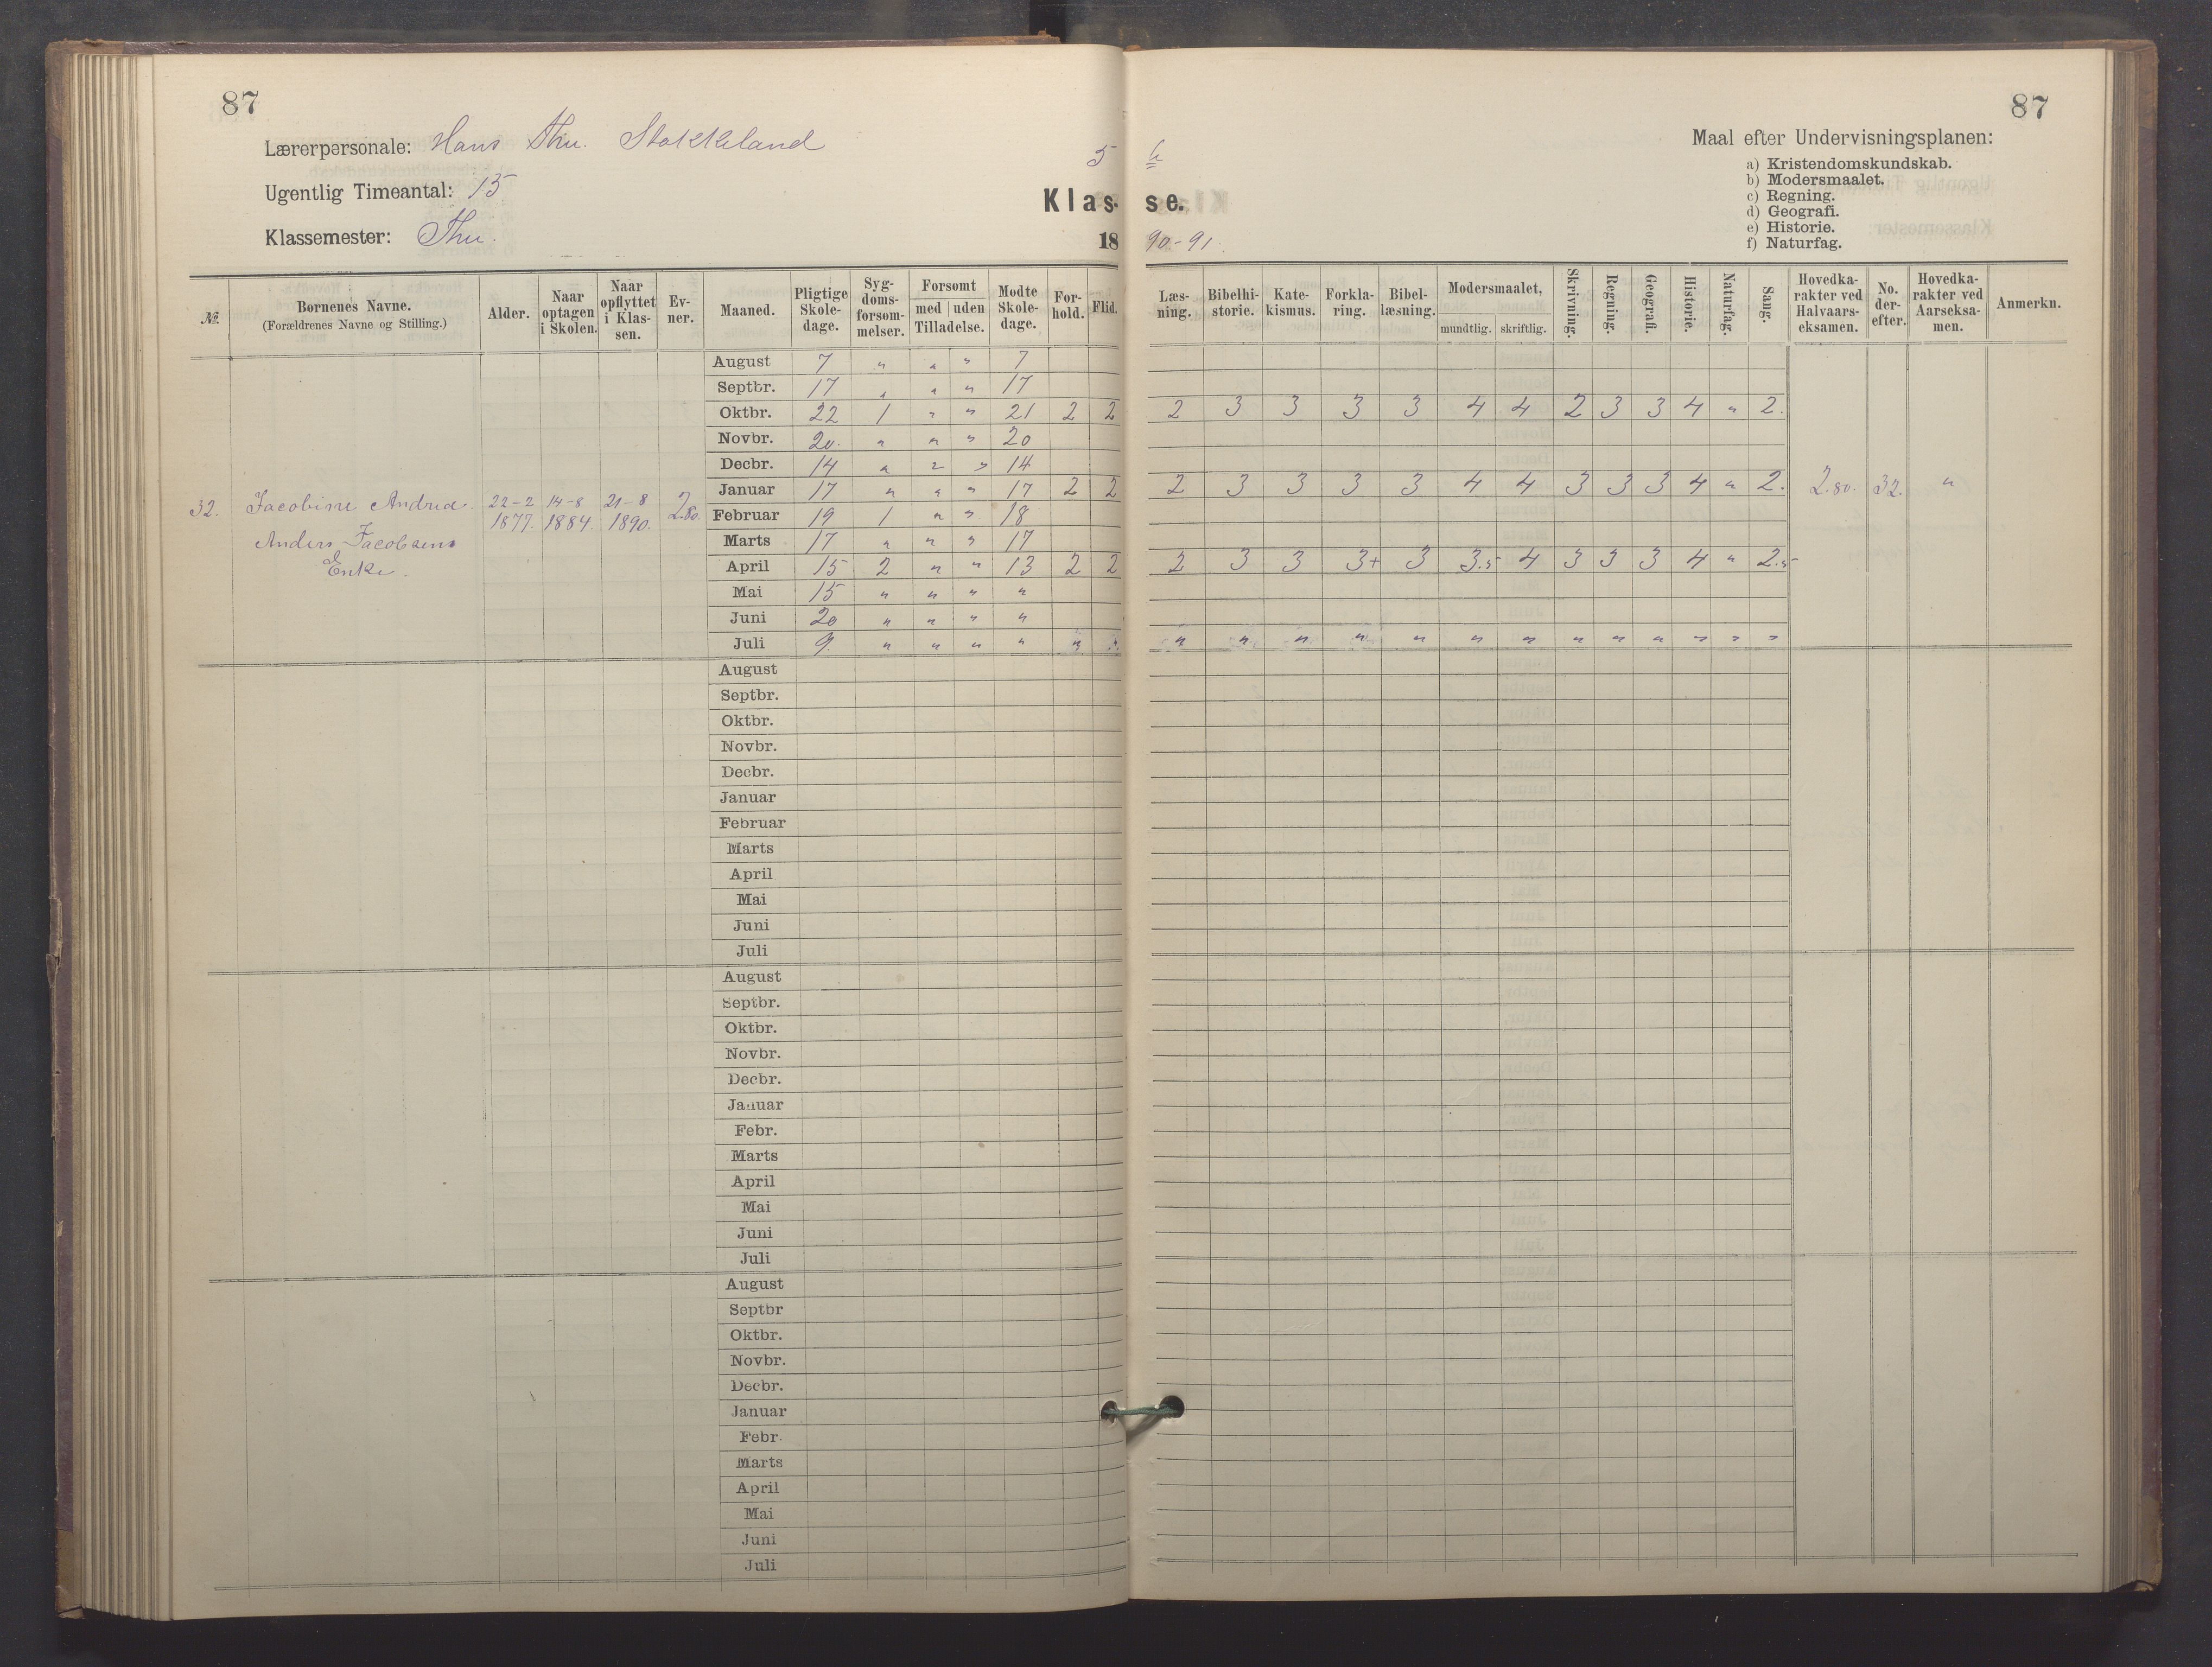 87
Lærerpersonale: Hans Thu. Stokkeland
Ugentlig Timeantal: 15
Klassemester: Thu.
5
Klas-
18
№. Børnenes Navne. (Forældrenes Navne og Stilling.) Alder. Naar optagen i Skolen. Naar opflyttet i Klassen. Evner. Maaned. Pligtige Skoledage. Sygdomsforsømmelser. Forsømt med uden Tilladelse. Mødte Skoledage. Forhold. Flid.
August 7 " " " 7
Septbr. 17 " " " 17
Oktbr. 22 1 " " 21 2 2
Novbr. 20. " " " 20
Decbr. 14 " " " 14
Januar 17 " " " 17 2 2
Februar 19 1 " " 18
Marts 17 " " " 17
April 15 2 " " 13 2 2
Mai 15 " " " "
Juni 20 " " " "
Juli 9. " " " " " "
32. Jacobine Andrea. 22-2 14-8 21-8 2.80.
1877. 1884. 1890.
Anders Jacobsens
Enke.
August
Septbr.
Oktbr.
Novbr.
Decbr.
Januar
Februar
Marts
April
Mai
Juni
Juli
August
Septbr.
Oktbr.
Novbr.
Decbr.
Januar
Febr.
Marts
April
Mai
Juni
Juli
August
Septbr
Oktbr.
Novbr.
Decbr.
Januar
Febr.
Marts
April
Mai
Juni
Juli
87
Maal efter Undervisningsplanen:
a) Kristendomskundskab.
b) Modersmaalet.
c) Regning.
d) Geografi.
e) Historie.
f) Naturfag.
se.
90-91.
Læsning. Bibelhistorie. Katekismus. Forklaring. Bibellæsning. Modersmaalet, mundtlig. skriftlig. Skrivning. Regning. Geografi. Historie. Naturfag. Sang. Hovedkarakter ved Halvaarseksamen. No. derefter. Hovedkarakter ved Aarseksamen. Anmerkn.
2 3 3 3 3 4 4 2 3 3 4 " 2.
2 3 3 3 3 4 4 3 3 3 4 " 2. 2.80. 32. "
2 3 3 3+ 3 3.5 4 3 3 3 4 " 2.5
" " " " " " " " " " " " "